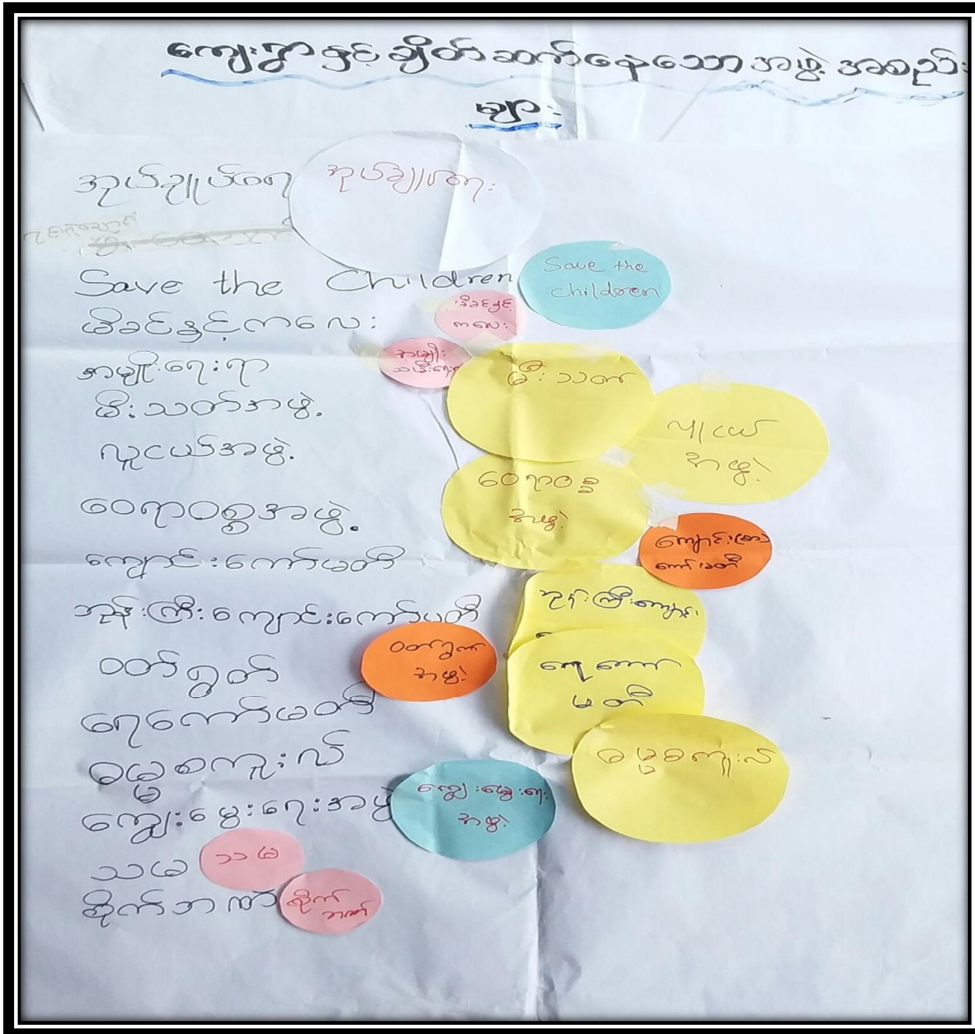 ကျေးရွာနှင့်ချိတ်ဆက်နေသောအဖွဲ့အစည်း
များ
အုပ်ချုပ်ရေး
အုပ်ချုပ်ရေး
Save the Children
Save the
children
မိခင်နှင့်ကလေး
မိခင်နှင့်
ကလေး
အမျိုး
မီးသတ်အဖွဲ့
မီးသတ်
လူငယ်အဖွဲ့
လူငယ်
အဖွဲ့
ဝေယျာဝစ္စအဖွဲ့
အဖွဲ့
ကျောင်းကော်မတီ
ကော်မတီ
ဘုန်းကြီးကျောင်းကော်မတီ
ဘုန်းကြီးကျောင်း
ဝတ်ရွတ်
ဝတ်ရွတ်
အဖွဲ့
ရေကော်မတီ
ရေကော်
မတီ
ဓမ္မစကူးလ်
ဓမ္မစကူးလ်
ကျွေးမွေးရေးအဖွဲ့
ကျွေးမွေးရေး
အဖွဲ့
သမ
သမ
စိုက်ဘဏ်
စိုက်
ဘဏ်